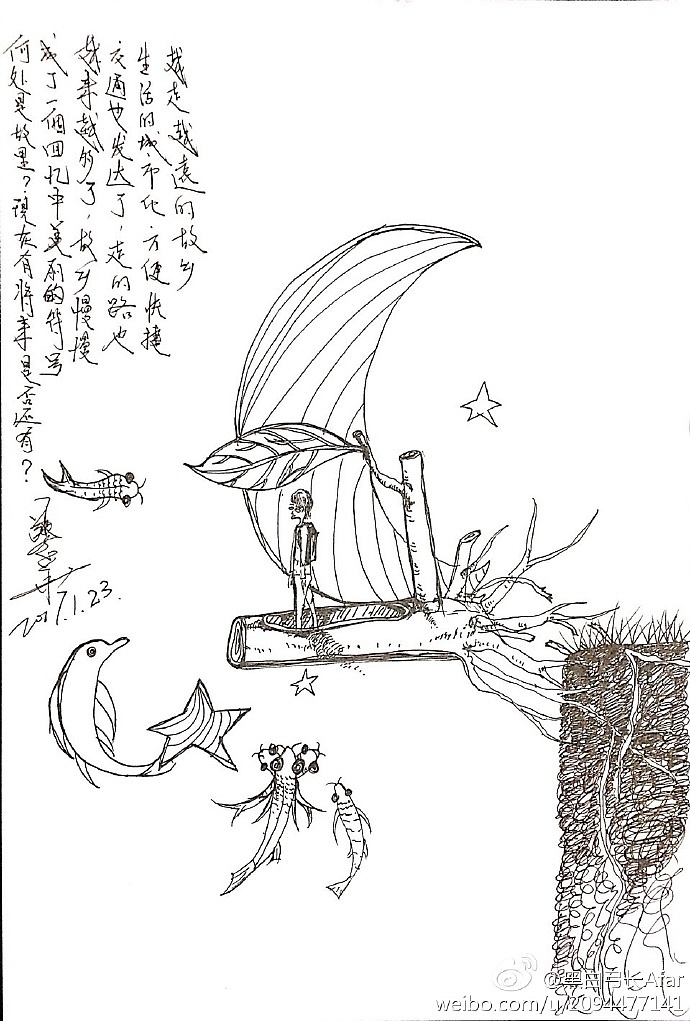 越走越遠的故乡
生活的城市化方便快捷
交通也发达了，走的路也
越来越多了，故乡慢慢
成了一個回忆中美丽的符号
何处是故里？現在有將来是否还有？
2017.1.23.
@黑白弓长Afar
weibo.com/u/2094477141